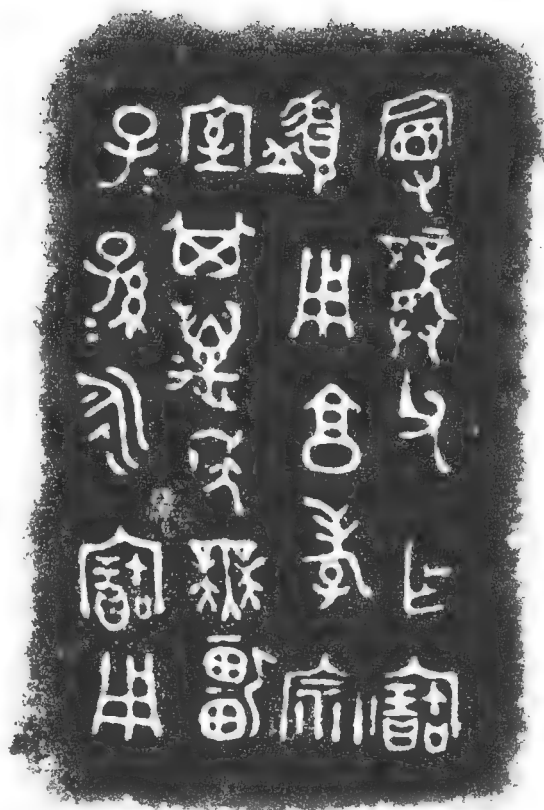 曼龏父乍寶
盨用享孝宗
室其萬年無疆
子=孫=永寶用